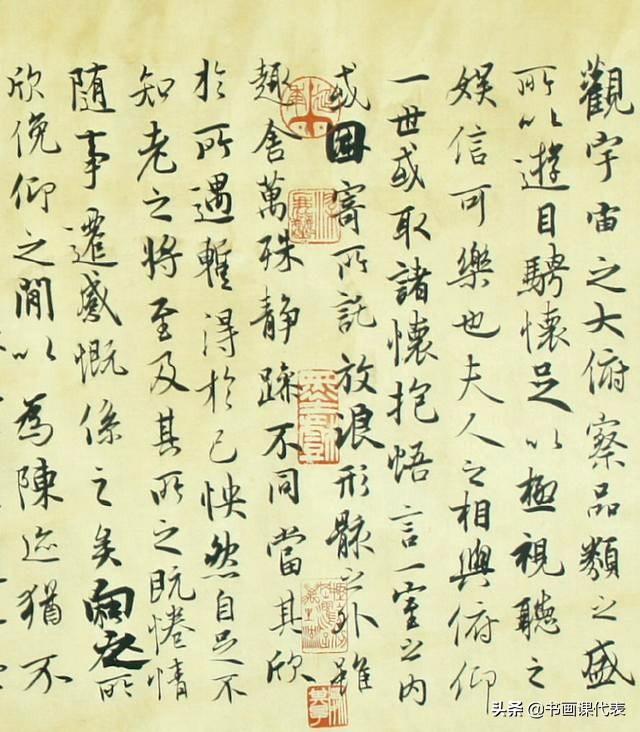 觀宇宙之大俯察品類之盛
所以遊目騁懷足以極視聽之
娱信可樂也夫人之相與俯仰
一世或取諸懷抱悟言一室之内
或因寄所託放浪形骸之外雖
趣舍萬殊静躁不同當其欣
於所遇暫得於己怏然自足不
知老之將至及其所之既惓情
随事遷感慨係之矣向之所
欣俛仰之閒以為陳迹猶不
头条 @书画课代表